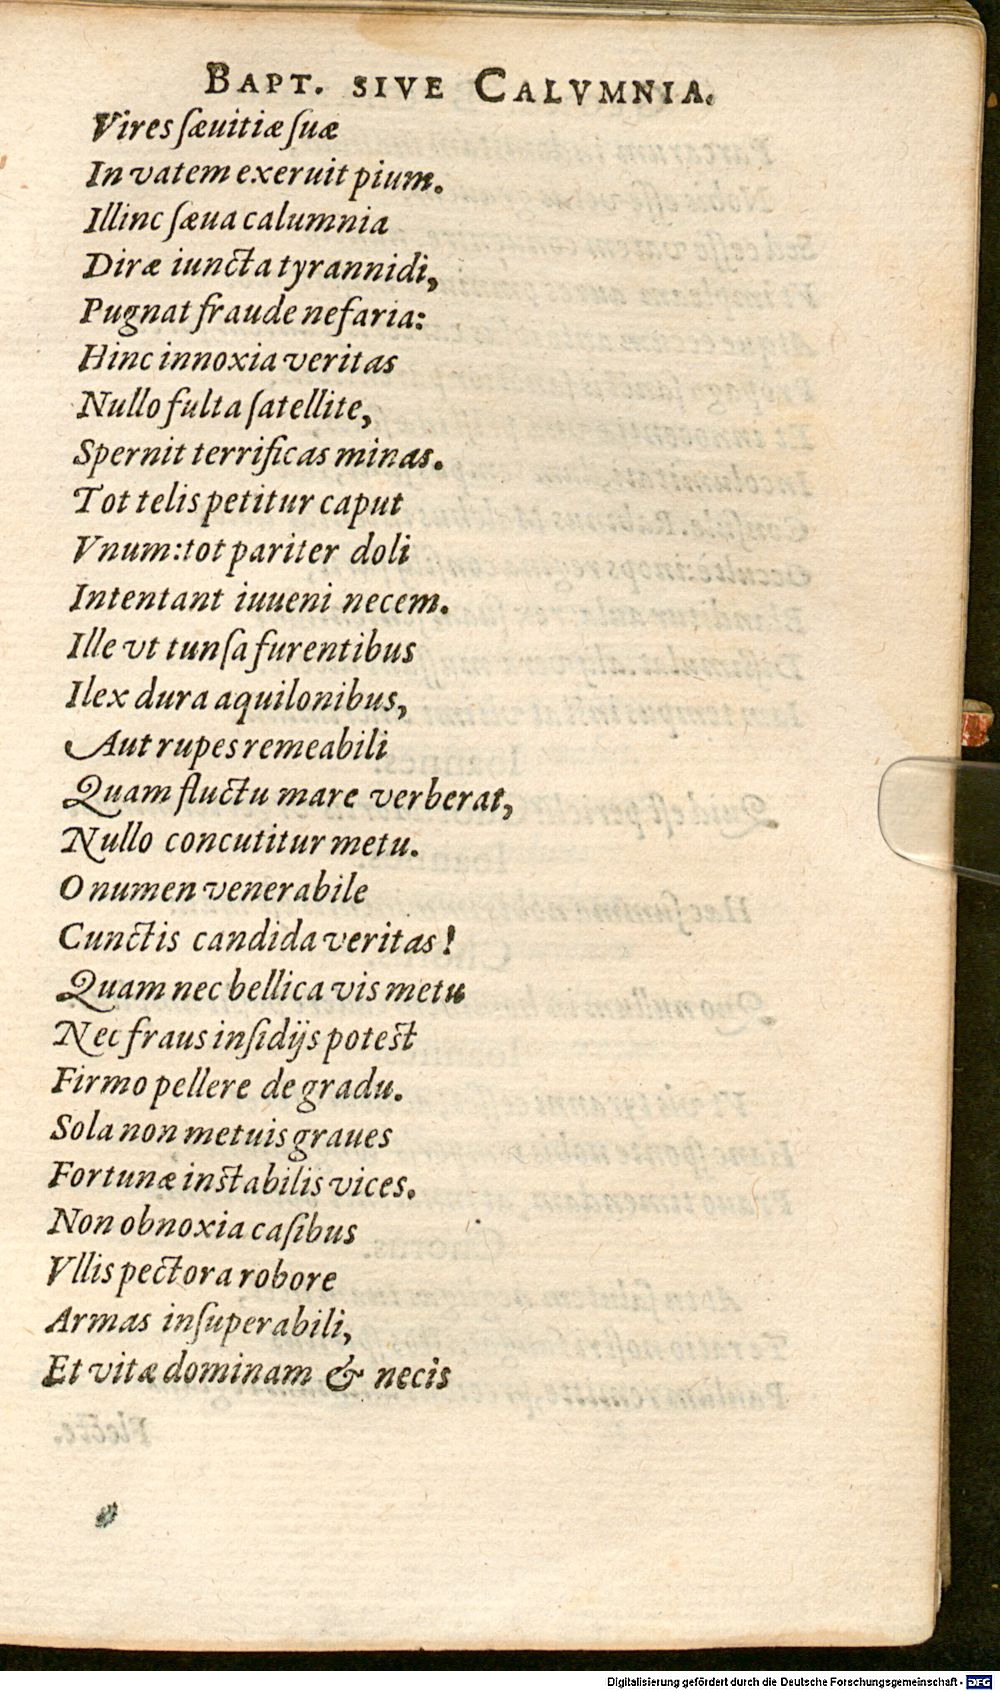 BAPT. SIVE CALVMNIA.
Vires sæuitiæ suæ
In vatem exeruit pium.
Illinc sæua calumnia
Diræ iuncta tyrannidi,
Pugnat fraude nefaria:
Hinc innoxia veritas
Nullo fulta satellite,
Spernit terrificas minas.
Tot telis petitur caput
Vnum: tot pariter doli
Intentant iuueni necem.
Ille vt tunsa furentibus
Ilex dura aquilonibus,
Aut rupes remeabili
Quam fluctu mare verberat,
Nullo concutitur metu.
O numen venerabile
Cunctis candida veritas!
Quam nec bellica vis metu
Nec fraus insidijs potest
Firmo pellere de gradu.
Sola non metuis graues
Fortunæ instabilis vices.
Non obnoxia casibus
Vllis pectora robore
Armas insuperabili,
Et vitæ dominam & necis
Digitalisierung gefördert durch die Deutsche Forschungsgemeinschaft - DFG